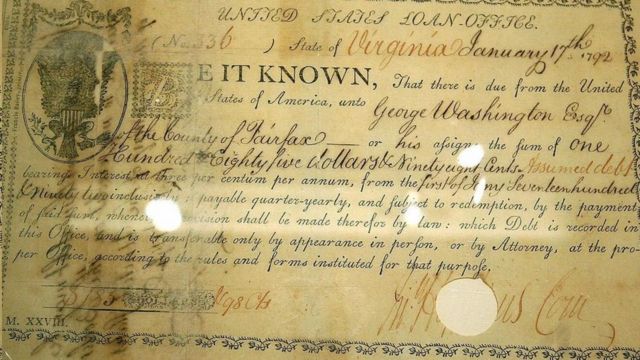 UNITED STATES LOAN-OFFICE.
(No. 336) State of Virginia January 17th 1792
BE IT KNOWN, That there is due from the United
States of America, unto George Washington Esqr
of the County of Fairfax or his assigns the sum of One
Hundred & Eighty five dollars & Ninety eight Cents Assumed debt
bearing Interest at three per centum per annum, from the first of Jany Seventeen hundred
& Ninety two inclusively payable quarter-yearly, and subject to redemption, by the payment
of said sum, whenever provision shall be made therefor by law: which Debt is recorded in
this Office, and is transferable only by appearance in person, or by Attorney, at the pro-
per Office, according to the rules and forms instituted for that purpose,
DOLLARS 98 Cts
M. XXVIII.